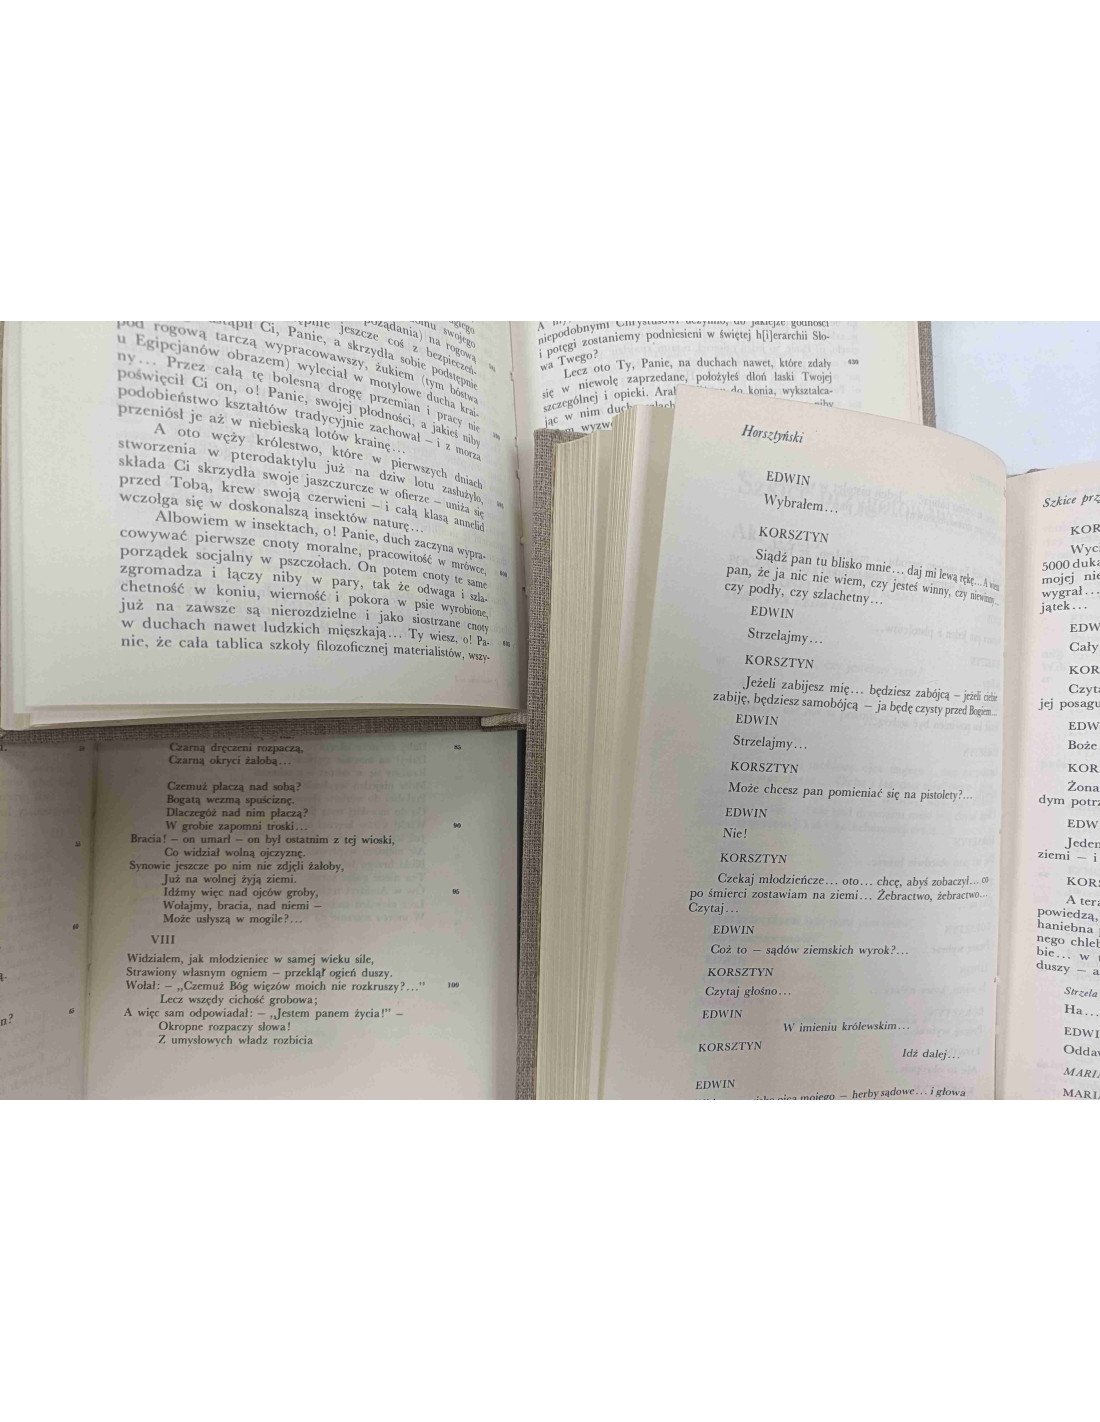 żądania) na rogową
tąpił Ci, Panie, a skrzydła sobie podstępnie
pod rogową tarczą wypracowawszy, żukiem (tym bóstwa
u Egipcjanów obrazem) wyleciał w motylowe ducha krai-
ny... Przez całą tę bolesną drogę przemian i pracy nie
poświęcił Ci on, o! Panie, swojej płodności, a jakieś niby
podobieństwo kształtów tradycyjnie zachował – i z morza
przeniósł je aż w niebieską lotów krainę...
A oto węży królestwo, które w pierwszych dniach
stworzenia w pterodaktylu już na dziw lotu zasłużyło,
składa Ci skrzydła swoje jaszczurcze w ofierze – uniża się
przed Tobą, krew swoją czerwieni – i całą klasą annelid
wczołga się w doskonalszą insektów naturę...
Albowiem w insektach, o! Panie, duch zaczyna wypra-
cowywać pierwsze cnoty moralne, pracowitość w mrówce,
porządek socjalny w pszczołach. On potem cnoty te same
zgromadza i łączy niby w pary, tak że odwaga i szla-
chetność w koniu, wierność i pokora w psie wyrobione,
już na zawsze są nierozdzielne i jako siostrzane cnoty
w duchach nawet ludzkich mięszkają... Ty wiesz, o! Pa-
nie, że cała tablica szkoły filozoficznej materialistów, wszy-
niepodobnymi Chrystusowi uczyniło, do jakiejże godności
i potęgi zostaniemy podniesieni w świętej h[i]erarchii Sło-
wa Twego?
Lecz oto Ty, Panie, na duchach nawet, które zdały
się w niewolę zaprzedane, położyłeś dłoń łaski Twojej
szczególnej i opieki. do konia, wykształca-
jąc w nim
wyzw
Czarną dręczeni rozpaczą,
Czarną okryci żałobą...
Czemuż płaczą nad sobą?
Bogatą wezmą spuściznę.
Dlaczegóż nad nim płaczą?
W grobie zapomni troski... 90
Bracia! – on umarł – on był ostatnim z tej wioski,
Co widział wolną ojczyznę.
Synowie jeszcze po nim nie zdjęli żałoby,
Już na wolnej żyją ziemi.
Idźmy więc nad ojców groby, 95
Wołajmy, bracia, nad niemi –
Może usłyszą w mogile?...
VIII
Widziałem, jak młodzieniec w samej wieku sile,
Strawiony własnym ogniem – przeklął ogień duszy.
Wołał: – „Czemuż Bóg więzów moich nie rozkruszy?...” 100
Lecz wszędy cichość grobowa;
A więc sam odpowiadał: – „Jestem panem życia!” –
Okropne rozpaczy słowa!
Z umysłowych władz rozbicia
Horsztyński
EDWIN
Wybrałem...
KORSZTYN
Siądź pan tu blisko mnie... daj mi lewą rękę... A wiem
pan, że ja nic nie wiem, czy jesteś winny, czy niewinny...
czy podły, czy szlachetny...
EDWIN
Strzelajmy...
KORSZTYN
Jeżeli zabijesz mię... będziesz zabójcą – jeżeli ciebie
zabiję, będziesz samobójcą – ja będę czysty przed Bogiem...
EDWIN
Strzelajmy...
KORSZTYN
Może chcesz pan pomieniać się na pistolety?...
EDWIN
Nie!
KORSZTYN
Czekaj młodzieńcze... oto... chcę, abyś zobaczył... co
po śmierci zostawiam na ziemi... Żebractwo, żebractwo...
Czytaj...
EDWIN
Coż to – sądów ziemskich wyrok?...
KORSZTYN
Czytaj głośno...
EDWIN
W imieniu królewskim...
KORSZTYN
Idź dalej...
EDWIN
ojca mojego – herby sądowe... i głowa
Szkice prz
KOR
Wyc
5000 duka
mojej nie
wygrał...
jątek...
EDW
Cały
KOR
Czyta
jej posagu
EDW
Boże
KOR
Żona
dym potrz
EDW
Jeden
ziemi – i
KORS
A tera
powiedzą,
haniebna
nego chleb
bie... w
duszy – a
Strzela
Ha...
EDWI
Oddaw
MARIA
MARI